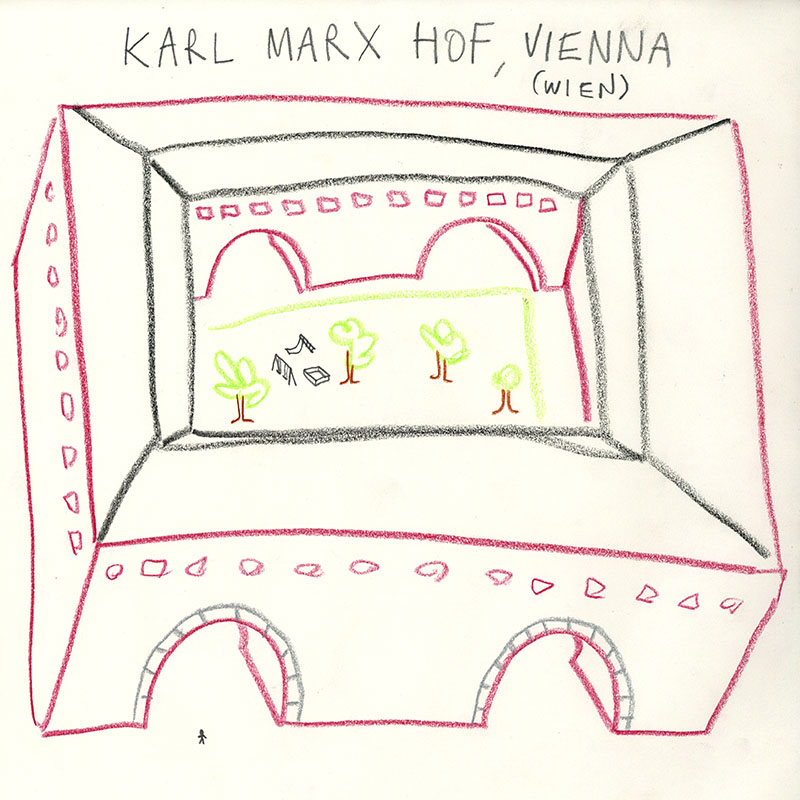 KARL MARX HOF, VIENNA
(WIEN)